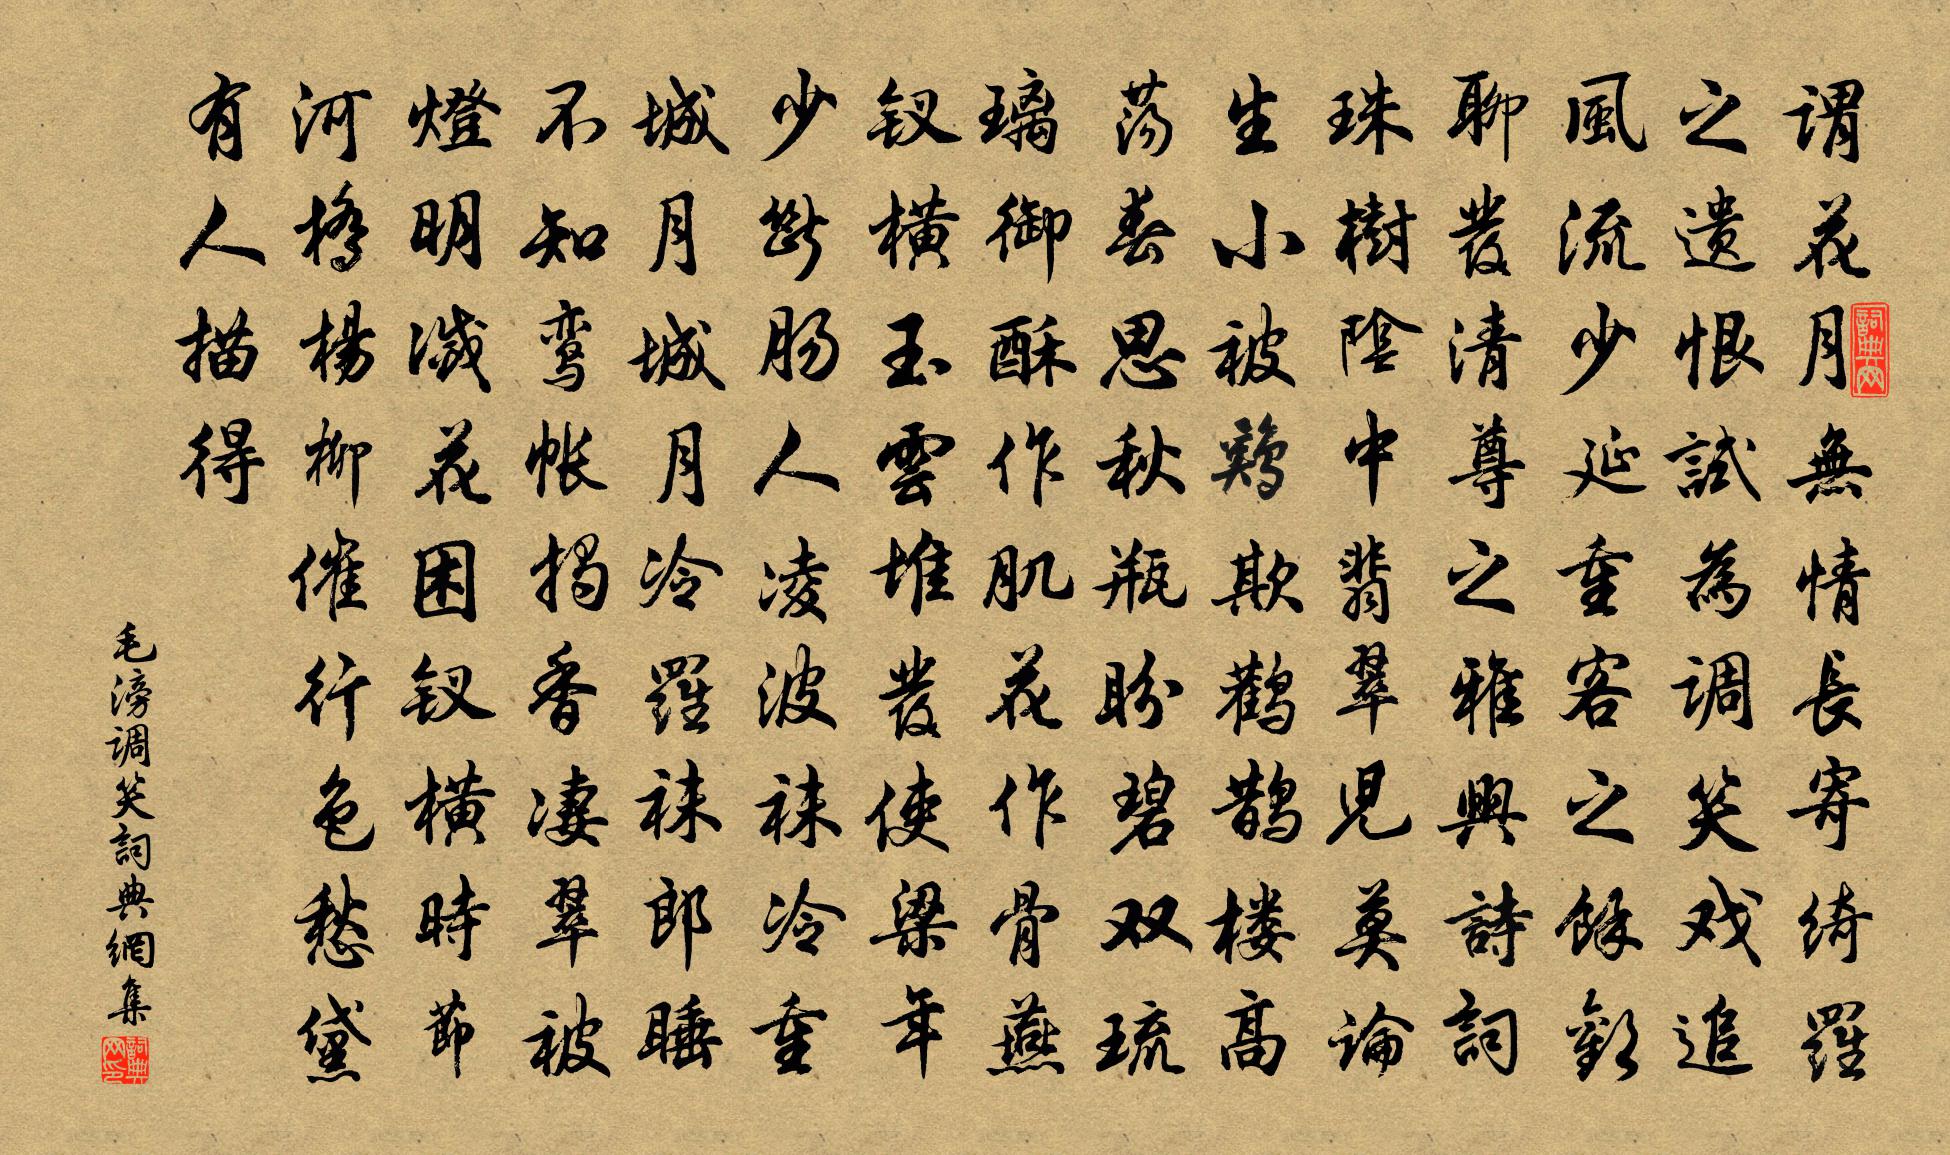 謂花月無情長寄綺羅
之遗恨試為调笑戏追
風流少延重客之餘歡
聊發清尊之雅興詩詞
珠樹陰中翡翠兒莫論
生小被鶏欺鸛鵲楼高
荡春思秋瓶盼碧双琉
璃御酥作肌花作骨燕
钗横玉雲堆發使梁年
少斷肠人凌波袜冷重
城月城月冷羅袜郎睡
不知鸾帐揭香凄翠被
燈明滅花困钗横時節
河橋楊柳催行色愁黛
有人描得
毛滂调笑詞典網集
詞典网
詞典网印